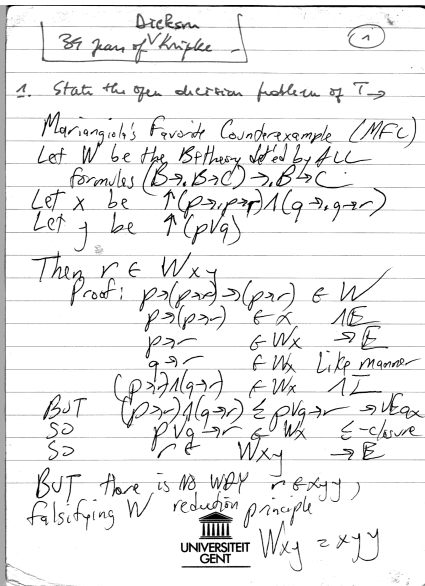 Dickson
39 years of Kripke
1
1. State the open decision problem of T→
Mariangiola's Favorite Counderexample (MFC)
Let W be the B+ theory det'ed by ALL
formulas (B→.B→C)→.B→C.
Let x be ↑(p→.p→r)∧(q→.q→r)
Let y be ↑(p∨q)
Then r ∈ Wxy
Proof: p→(p→r)→(p→r) ∈ W
p→(p→r) ∈ x ∧E
p→r ∈ Wx →E
q→r ∈ Wx Like manner
(p→r)∧(q→r) ∈ Wx ∧I
BUT (p→r)∧(q→r) ≤ p∨q→r →∨Eax
SO p∨q→r ∈ Wx ≤-closure
SO r ∈ Wxy →E
BUT there is NO WAY r ∈ xyy,
falsifying W reduction principle
Wxy = xyy
UNIVERSITEIT
GENT